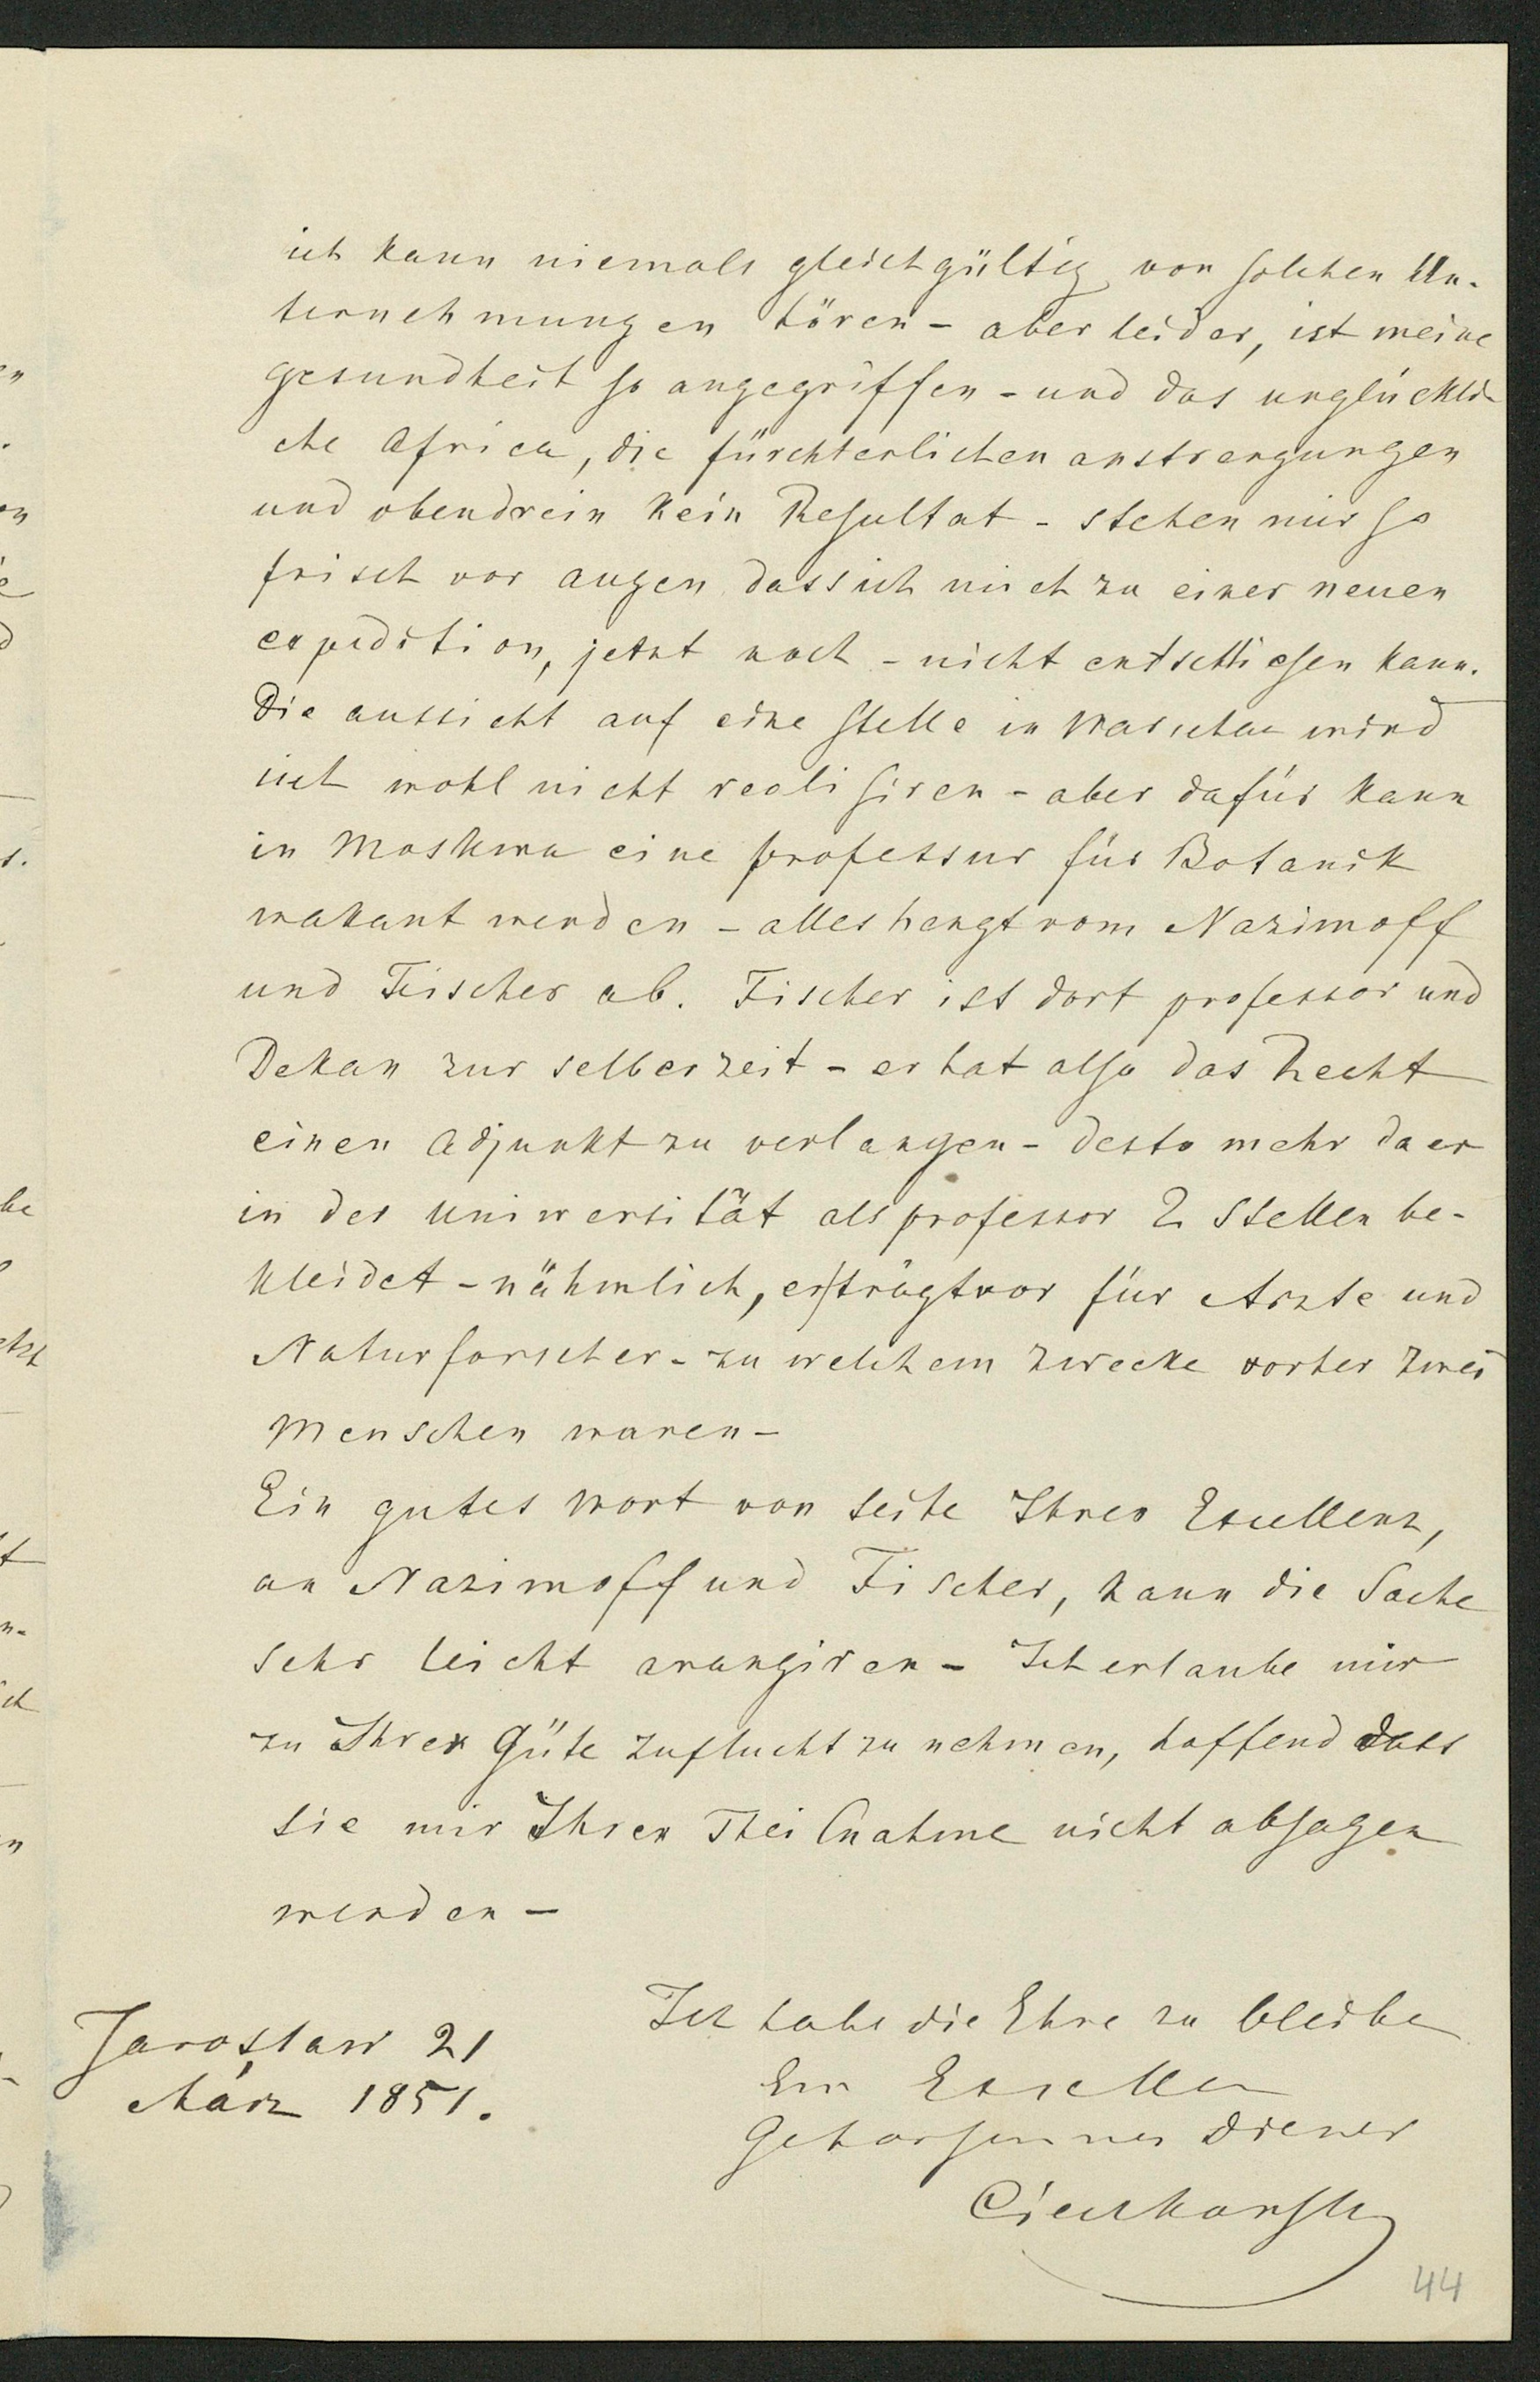 ich kann niemals gleichgültig von solchen Un-
ternehmungen hören - aber leider, ist meine
gesundheit so angegriffen - und das unglückli
che Africa, die fürchterlichen anstrengungen
und obendrein kein Resultat - stehen mir so
frisch vor augen dass ich mich zu einer neuen
expedition, jetzt noch - nicht entschliesen kann.
Die aussicht auf eine Stelle in Warschau wird
sich wohl nicht realisiren - aber dafür kann
in Moskwa eine professur für Botanik
wakant werden - alles hengt vom Nazimoff
und Fischer ab. Fischer ist dort professor und
Dekan zur selber zeit - er hat also das Recht
einen Adjunkt zu verlangen - desto mehr da er
in der Uniwersität als professor 2 Stellen be-
kleidet - nähmlich, er trägt vor für Arzte und
Naturforscher - zu welchem zwecke vorher zwei
Menschen waren -
Ein gutes Wort von seite Ihrer Excellenz,
an Nazimoff und Fischer, kann die Sache
sehr leicht arangiren - Ich erlaube mir
zu Ihrer Güte zuflucht zu nehmen, hoffend dass
sie mir Ihren Theilnahme nicht absagen
werden -
Ich habe die Ehre zu bleiben
Ew Excellen
Gehorsammer Diener
Cienkowsky
Jarosław 21
März 1851.
44